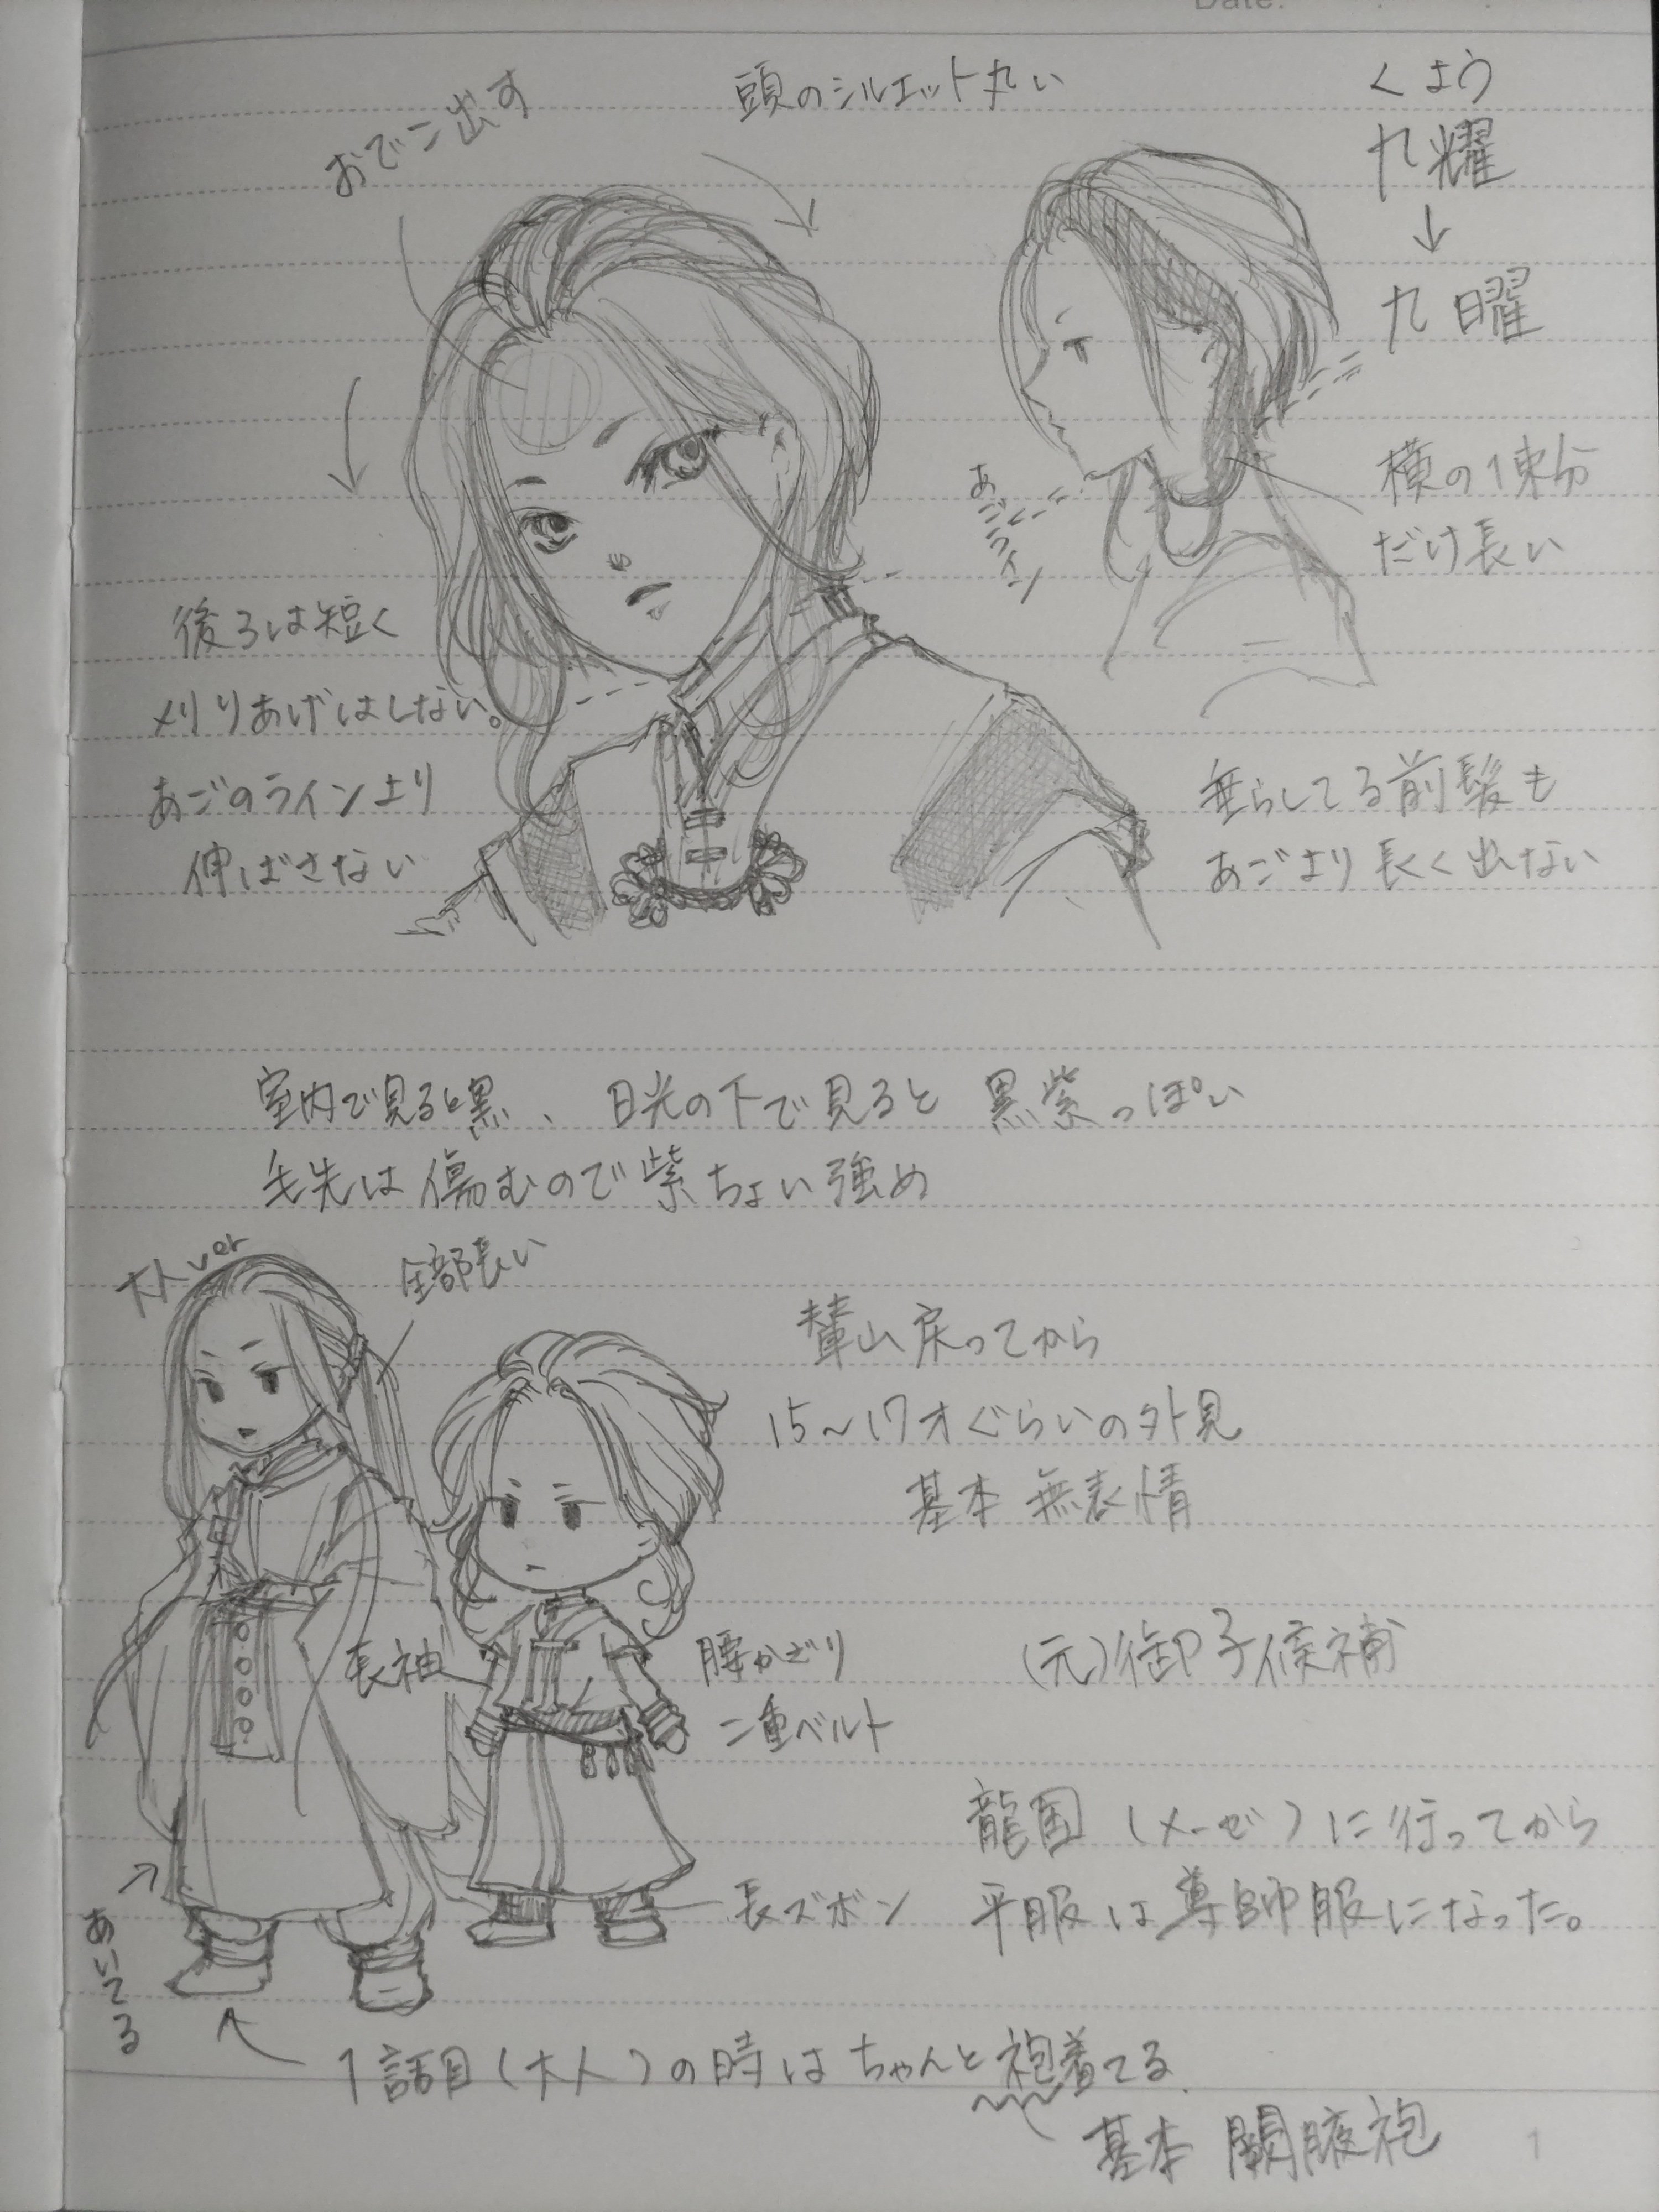 Date:
おでこ出す
頭のシルエット丸い
くよう
九耀
↓
九曜
横の1束分
だけ長い
あごライン
後ろは短く
刈りあげはしない。
あごのラインより
伸ばさない
垂らしてる前髪も
あごより長く出ない
室内で見ると黒、日光の下で見ると黒紫っぽい
毛先は傷むので紫ちょい強め
大人ver
全部長い
輦山戻ってから
15〜17才ぐらいの外見
基本無表情
長袖
腰かざり
二重ベルト
(元)御子候補
龍国(メーゼ)に行ってから
長ズボン
平服は導師服になった。
あいてる
1話目(大人)の時はちゃんと袍着てる.
基本 闕腋袍
1